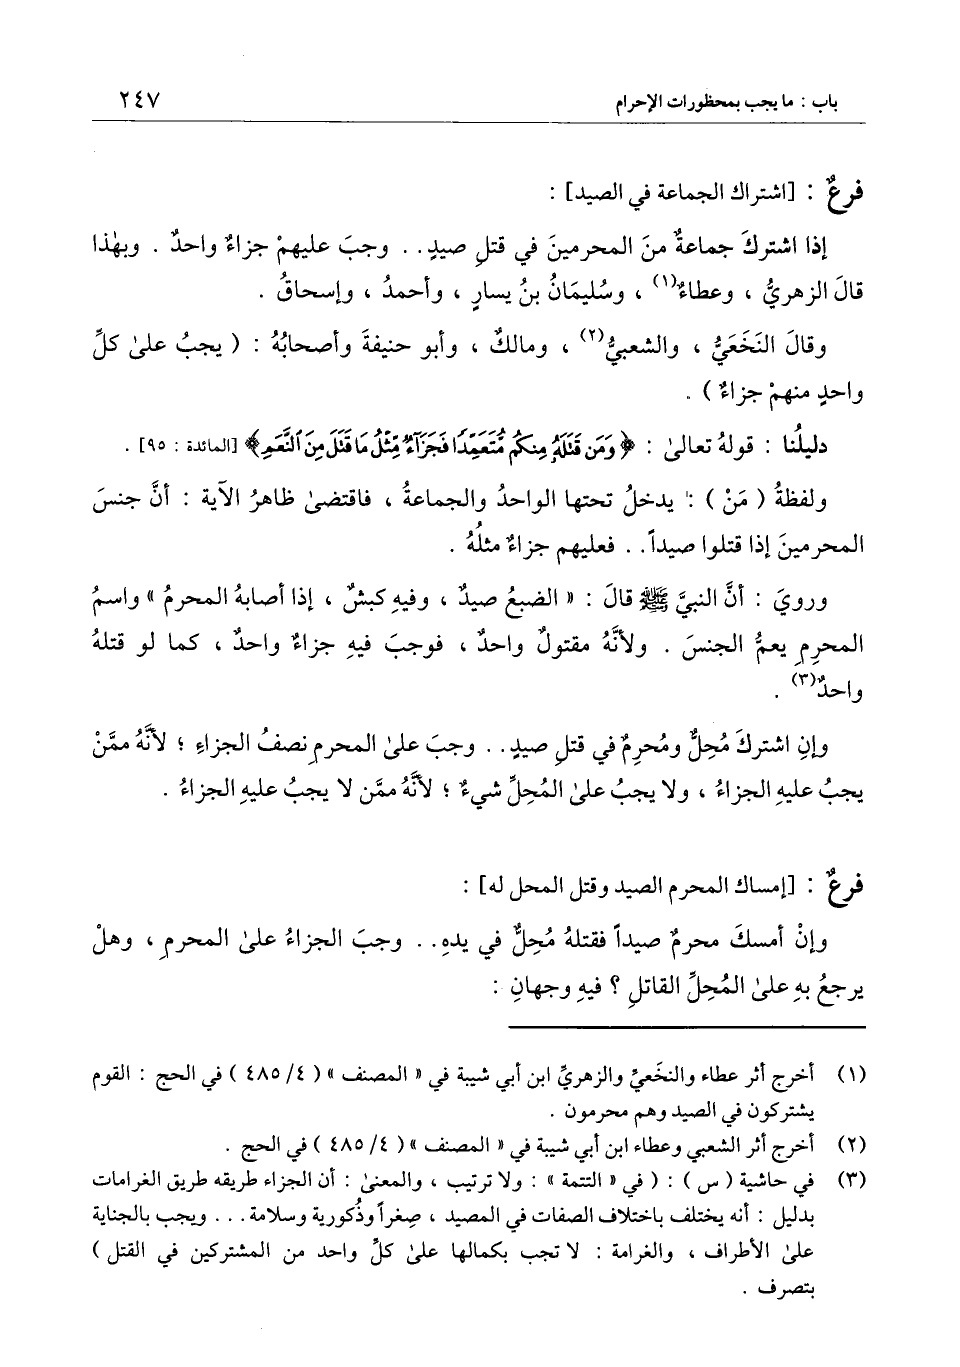 باب : ما يجب بمحظورات الإحرام ٢٤٧
فرعٌ : [اشتراك الجماعة في الصيد] :
إذا اشتركَ جماعةٌ منَ المحرمينَ في قتلِ صيدٍ . . وجبَ عليهمْ جزاءٌ واحدٌ . وبهٰذا
قالَ الزهريُّ ، وعطاءٌ(١) ، وسُليمَانُ بنُ يسارٍ ، وأحمدُ ، وإسحاقُ .
وقالَ النَخَعَيُّ ، والشعبيُّ(٢) ، ومالكٌ ، وأبو حنيفةَ وأصحابُهُ : ( يجبُ علىٰ كلِّ
واحدٍ منهمْ جزاءٌ ) .
دليلُنا : قولهُ تعالىٰ : ﴿ وَمَن قَتَلَهُۥ مِنكُم مُّتَعَمِّدًا فَجَزَآءٌ مِّثْلُ مَا قَتَلَ مِنَ ٱلنَّعَمِ ﴾ [المائدة : ٩٥] .
ولفظةُ ( مَنْ ) : يدخلُ تحتها الواحدُ والجماعةُ ، فاقتضىٰ ظاهرُ الآية : أنَّ جنسَ
المحرمينَ إذا قتلوا صيداً . . فعليهم جزاءٌ مثلُهُ .
ورويَ : أنَّ النبيَّ ﷺ قالَ : « الضبعُ صيدٌ ، وفيهِ كبشٌ ، إذا أصابهُ المحرمُ » واسمُ
المحرِمِ يعمُّ الجنسَ . ولأنَّهُ مقتولٌ واحدٌ ، فوجبَ فيهِ جزاءٌ واحدٌ ، كما لو قتلهُ
واحدٌ(٣) .
وإنِ اشتركَ مُحِلٌّ ومُحرِمٌ في قتلِ صيدٍ . . وجبَ علىٰ المحرمِ نصفُ الجزاءِ ؛ لأنَّهُ ممَّنْ
يجبُ عليهِ الجزاءُ ، ولا يجبُ علىٰ المُحِلِّ شيءٌ ؛ لأنَّهُ ممَّن لا يجبُ عليهِ الجزاءُ .
فرعٌ : [إمساك المحرم الصيد وقتل المحل له] :
وإنْ أمسكَ محرمٌ صيداً فقتلهُ مُحِلٌّ في يدهِ . . وجبَ الجزاءُ علىٰ المحرمِ ، وهلْ
يرجعُ بهِ علىٰ المُحِلِّ القاتلِ ؟ فيهِ وجهانِ :
(١) أخرج أثر عطاء والنخَعيِّ والزهريِّ ابن أبي شيبة في « المصنف » ( ٤/ ٤٨٥ ) في الحج : القوم
يشتركون في الصيد وهم محرمون .
(٢) أخرج أثر الشعبي وعطاء ابن أبي شيبة في « المصنف » ( ٤/ ٤٨٥ ) في الحج .
(٣) في حاشية ( س ) : ( في « التتمة » : ولا ترتيب ، والمعنىٰ : أن الجزاء طريقه طريق الغرامات
بدليل : أنه يختلف باختلاف الصفات في المصيد ، صِغراً وذُكورية وسلامة . . . ويجب بالجناية
علىٰ الأطراف ، والغرامة : لا تجب بكمالها علىٰ كلِّ واحد من المشتركين في القتل )
بتصرف .